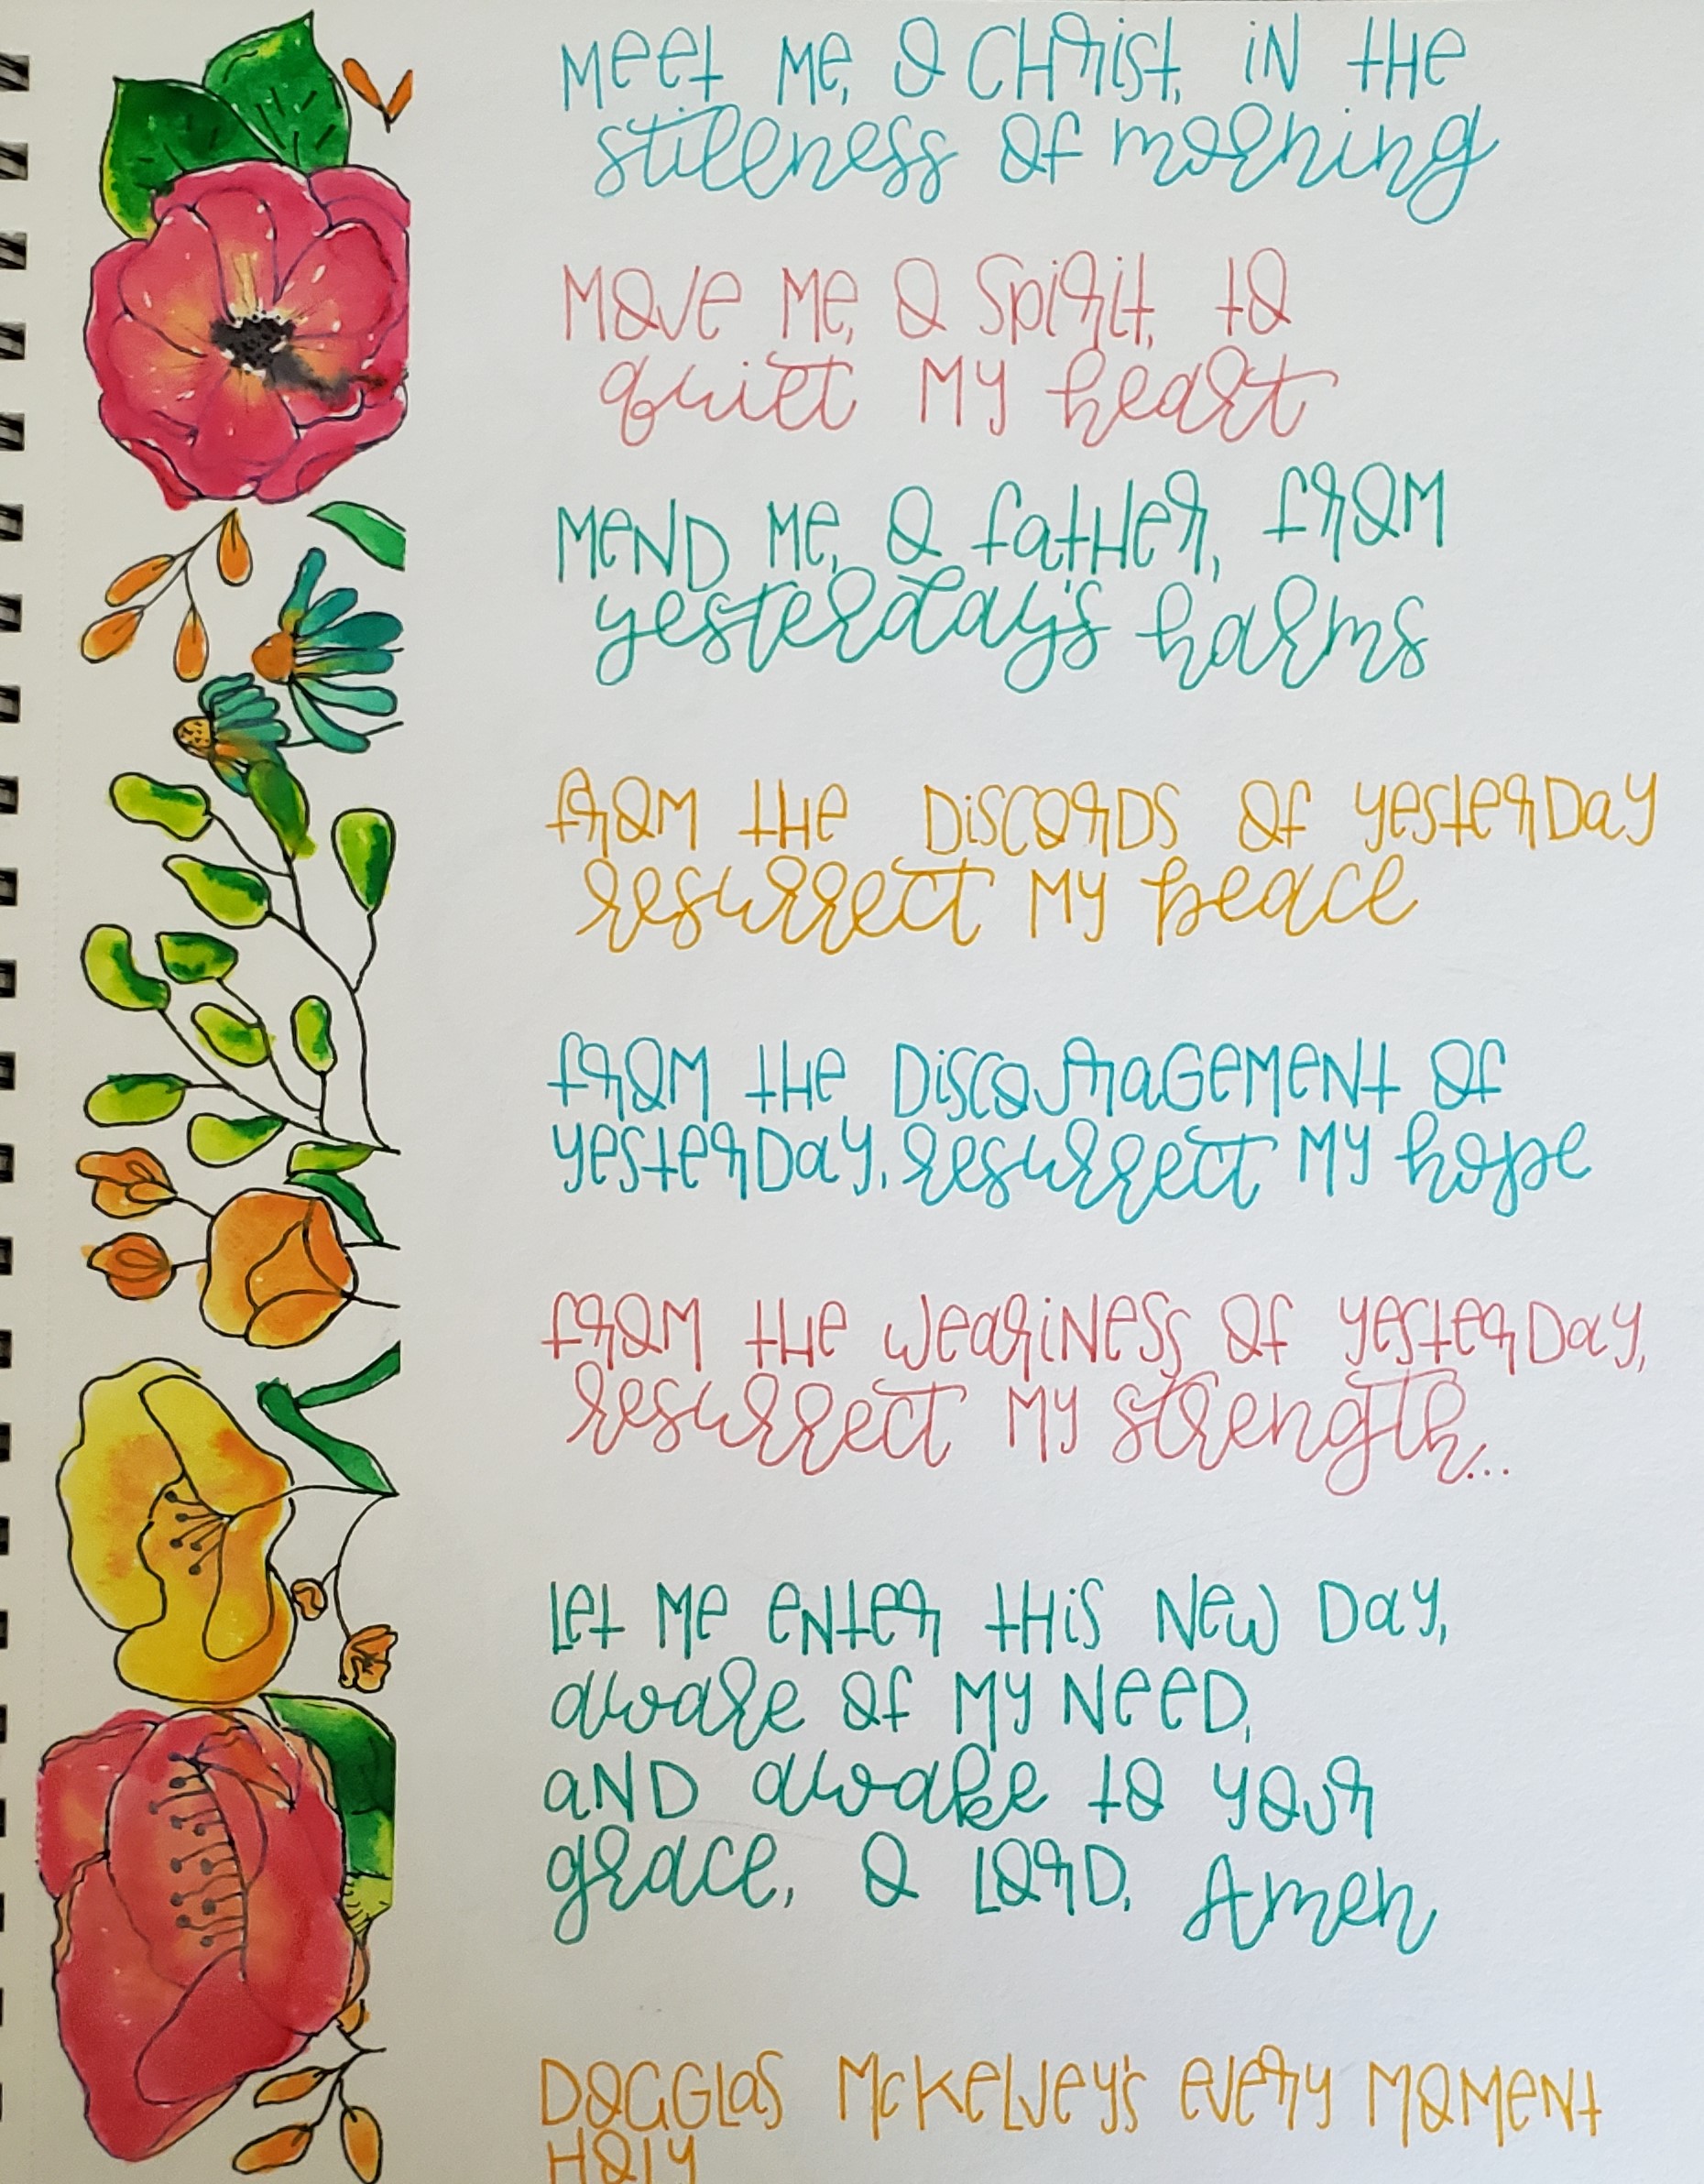 Meet Me, O Christ, in the
stillness of morning
Move Me, O Spirit, to
quiet My heart
Mend Me, O father, from
yesterday's harms
from the Discords of yesterday
resurrect My peace
from the Discouragement of
yesterday, resurrect My hope
from the weariness of yesterday,
resurrect My strength...
Let Me enter this New Day,
aware of My Need,
and awake to your
grace, O Lord, Amen
Dogglas McKelvey's every Moment
Holy